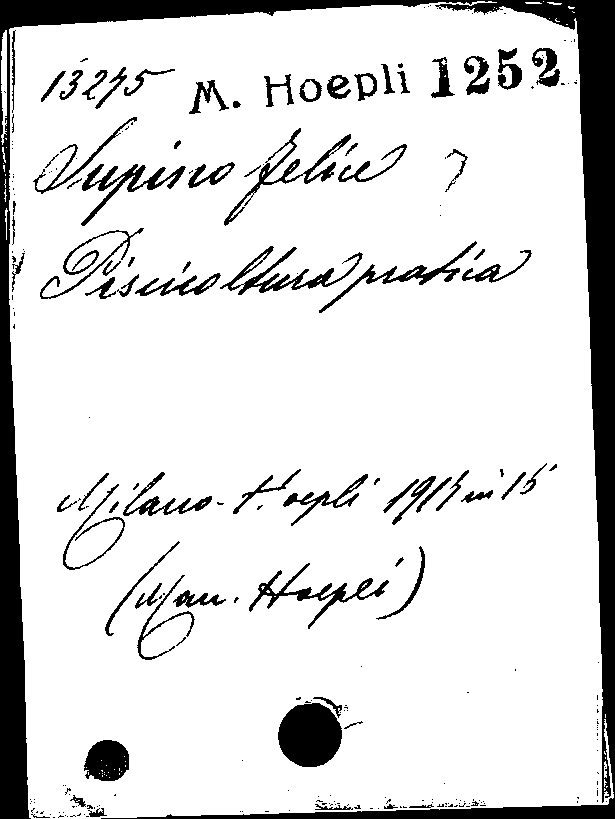 13275 M. Hoepli 1252
Supino Felice
Piscicoltura pratica
Milano - Hoepli in 15
(Man. Hoepli)